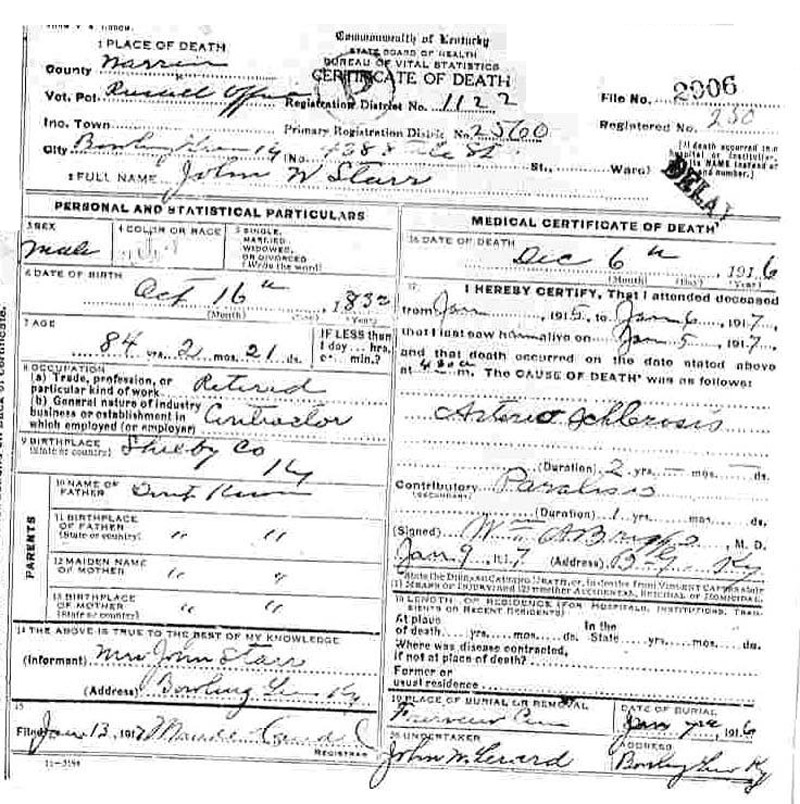 Commonwealth of Kentucky
STATE BOARD OF HEALTH
BUREAU OF VITAL STATISTICS
CERTIFICATE OF DEATH
1 PLACE OF DEATH
County Warren
Vot. Pct. Russell
Registration District No. 1122
File No. 2006
Inc. Town
Primary Registration District No. 2560
Registered No. 250
City Bowling Green Ky (No. 438 St., Ward)
[If death occurred in a hospital or institution, its NAME instead of and number.]
DELAY
2 FULL NAME John W Starr
PERSONAL AND STATISTICAL PARTICULARS
3 SEX
Male
4 COLOR OR RACE
5 SINGLE, MARRIED, WIDOWED, OR DIVORCED (Write the word)
6 DATE OF BIRTH
Oct 16th, 1832
(Month) (Day) (Year)
7 AGE
84 yrs. 2 mos. 21 ds.
IF LESS than 1 day... hrs. or... min.?
8 OCCUPATION
(a) Trade, profession, or particular kind of work Retired
(b) General nature of industry business or establishment in which employed (or employer) Contractor
9 BIRTHPLACE
(State or country) Shelby Co Ky
PARENTS
10 NAME OF FATHER Dont Know
11 BIRTHPLACE OF FATHER (State or country) " "
12 MAIDEN NAME OF MOTHER " "
13 BIRTHPLACE OF MOTHER (State or country) " "
14 THE ABOVE IS TRUE TO THE BEST OF MY KNOWLEDGE
(Informant) Mrs John Starr
(Address) Bowling Green Ky
15
Filed Jan 13, 1917 Maude
REGISTRAR
11-3184
MEDICAL CERTIFICATE OF DEATH
16 DATE OF DEATH
Dec 6th, 1916
(Month) (Day) (Year)
17 I HEREBY CERTIFY, That I attended deceased
from Jan, 1915, to Jan 6, 1917,
that I last saw him alive on Jan 5, 1917,
and that death occurred on the date stated above
at 4 30a m. The CAUSE OF DEATH was as follows:
Arterio Schlerosis
(Duration) 2 yrs. — mos. — ds.
Contributory Paralisis
(SECONDARY)
(Duration) 1 yrs. mos. ds.
(Signed) Wm A Briggs, M. D.
Jan 9, 1917 (Address) B. G. Ky
State the DISEASE CAUSING DEATH, or, in deaths from VIOLENT CAUSES state (1) MEANS OF INJURY; and (2) whether ACCIDENTAL, SUICIDAL or HOMICIDAL.
18 LENGTH OF RESIDENCE (FOR HOSPITALS, INSTITUTIONS, TRANSIENTS OR RECENT RESIDENTS)
At place of death yrs. mos. ds. In the State yrs. mos. ds.
Where was disease contracted, if not at place of death?
Former or usual residence
19 PLACE OF BURIAL OR REMOVAL
Fairview Cem
DATE OF BURIAL
Jan 7th, 1916
20 UNDERTAKER
John W. Gerard
ADDRESS
Bowling Green Ky